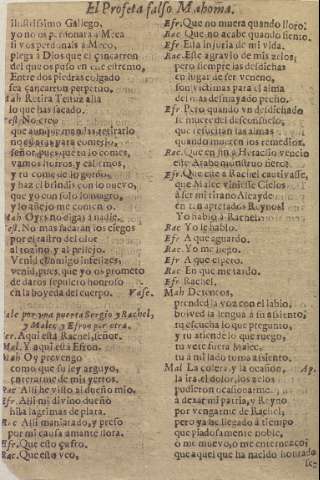 El Profeta falso Mahoma.
ilustrissimo Gallego,
yo no os perdonara a Meca
si vos perdonais a Meco,
plega a Dios que el çancarron
del que os puso en esse estremo,
Entre dos piedras colgado
sea çancarron perpetuo.
Mah Retira Tentuz alla
lo que has sacado.
Tes. No creo
que aunque mandas retirarlo
no es para comerlo,
señor, pues que te lo comes,
vamos horros y
y tu come de lo gordo
y haz el brindis con lo nuevo,
que yo con solo lo magro,
y lo añejo me contento.
Mah Oyes no digas a nadie.
Tes. No mas sacaran los ciegos
por el rastro del olor
al tozino, y al pellejo.
Venid conmigo infelizes,
venid, pues, que yo os prometo
de daros sepulcro honroso
en la boveda del cuerpo. Vase.
Sale por una puerta Sergio y Rachel,
y Malec y Efron por otra.
Ser. Aqui està Rachel, señor.
Mal. Y aqui està Efron.
Mah Oy prevengo
como que su ley arguyo,
enterarme de mis yerros.
Rac Alli he visto al dueño mio.
Efr. Alli mi divino dueño
hila lagrimas de plata.
Rac Alli maniatado, y preso
por mi causa amante llora.
Efr. Que esto sufro.
Rac. Que esto veo,
Efr. Que no muera quando lloro.
Rac Que no acabe quando siento.
Efr Esta injuria de mi vida.
Rac. Este agravio de mis zelos;
pero siempre las desdichas
en lugar de ser veneno,
son victimas para el alma
del mas desmayado pecho.
Efr Pero quando un desdichado
se muere del desconsuelo,
que resucitan las almas
quando mueren los remedios.
Rac. Que en fin a Heraclio vencio
este Arabe monstruo fiero.
Efr. Que este a Rachel cautivasse,
que Malec viniesse Cielos
a ser mi tirano Alcayde
en tan apretados Reynos!
Yo hablo a Rachel.
Rac Yo le hablo.
Efr. A que aguardo.
Rac. Yo me llego.
Efr A que espero.
Rac. En que me tardo.
Efr Rachel.
Mah Deteneos,
prended la voz con el labio,
bolved la lengua a su assiento,
tu escucha lo que pregunto,
y tu atiende lo que ruego,
tu vete fuera Malec,
tu a mi lado toma assiento.
Mal La colera, y la ocasion, Ap.
la ira, el dolor, los zelos
pudieron ocasionarme
a dexar mi patria, y Reyno
por vengarme de Rachel,
pero ya he llegado a tiempo
que piadosamente noble,
ò me muevo, ò me enternezco;
que a aquel que ha nacido honrado